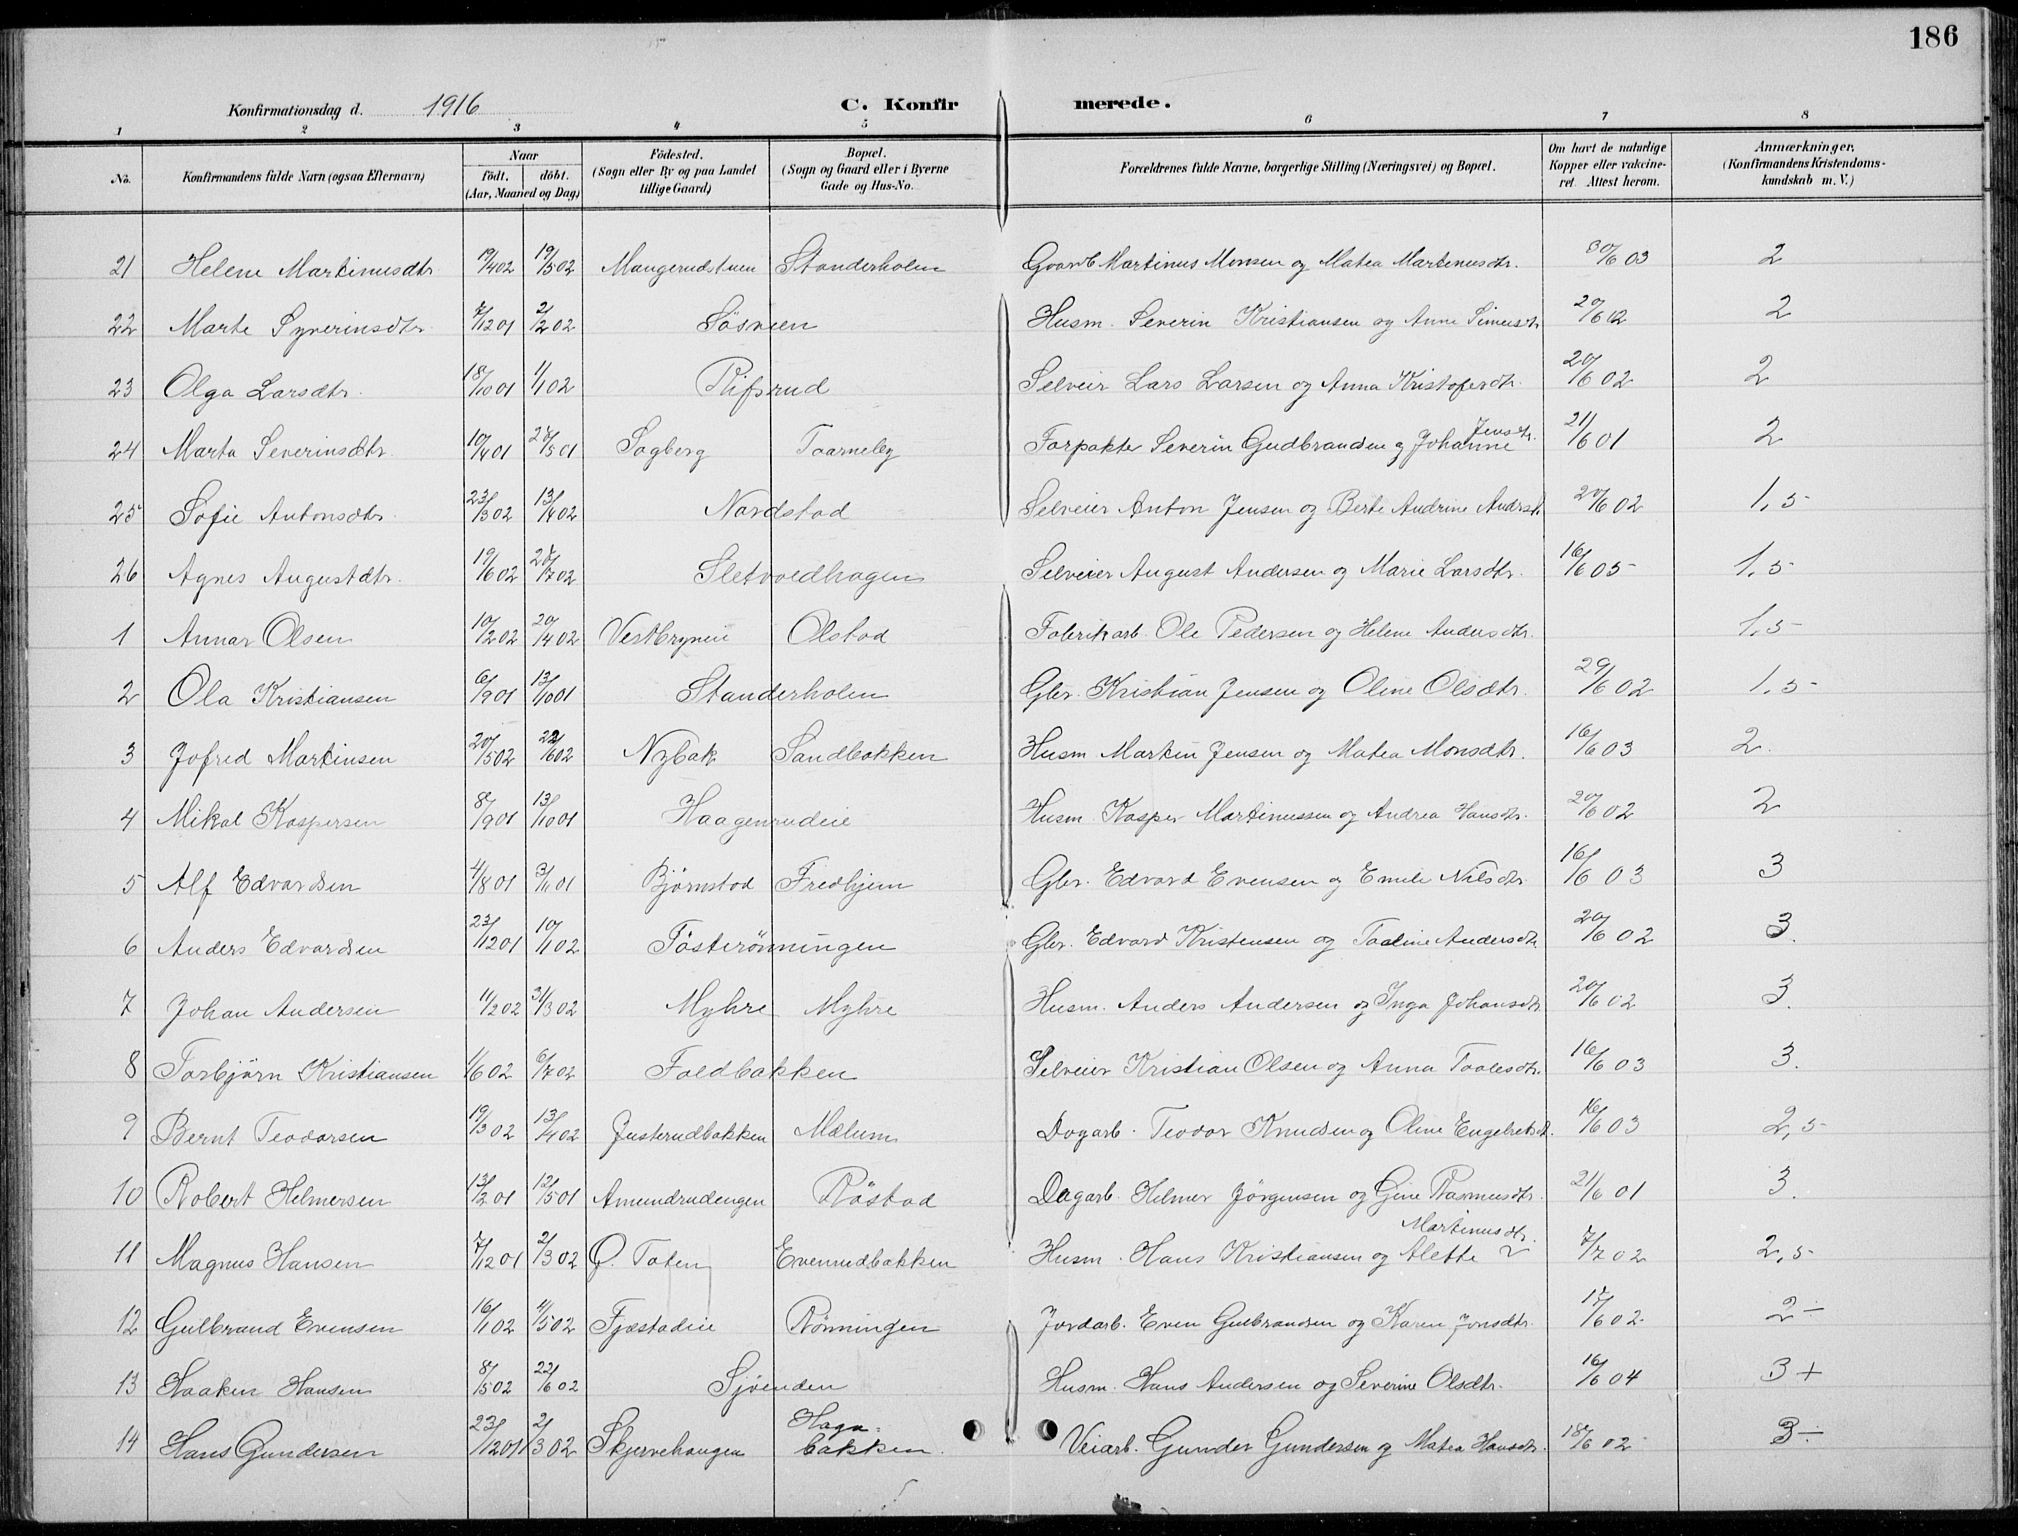 186
Konfirmationsdag d. 1916 C. Konfirmerede.
1 2 3 4 5 6 7 8
No. Konfirmandens fulde Navn (ogsaa Efternavn) Naar født. døbt. (Aar, Maaned og Dag) Fødested. (Sogn eller By og paa Landet tillige Gaard) Bopæl. (Sogn og Gaard eller i Byerne Gade og Hus-No. Forældrenes fulde Navne, borgerlige Stilling (Næringsvei) og Bopæl. Om havt de naturlige Kopper eller vakcineret. Attest herom. Anmærkninger. (Konfirmandens Kristendomskundskab m. V.)
21 Helene Martinusdtr. 19/4 02 19/5 02 Mangerudstuen Standerholen Gaarb Martinus Monsen og Matea Martinusdtr. 30/6 03 2
22 Marte Syverinsdtr. 7/12 01 2/2 02 Søsveen Husm. Severin Kristiansen og Anne Simensdtr 20/6 02 2
23 Olga Larsdtr. 18/10 01 1/1 02 Rifsrud Selveier Lars Larsen og Anna Kristofersdtr. 20/6 02 2
24 Marta Severinsdtr. 10/4 01 28/5 01 Sagberg Taarneby Forpakter Severin Gudbrandsen og Johanne Jensdtr. 21/6 01 2
25 Sofie Antonsdtr. 23/3 02 13/4 02 Nordstad Selveier Anton Jensen og Berte Andrine Andersdtr. 20/6 02 1,5
26 Agnes Augustdtr. 19/6 02 28/7 02 Sletvoldhagen Selveier August Andersen og Marie Larsdtr. 16/6 05 1,5
1 Annar Olsen 10/2 02 20/4 02 Vestbryneie Olstad Fabrikarb. Ole Pedersen og Helene Andersdtr. 1,5
2 Ola Kristiansen 6/9 01 13/10 01 Standerholen Gbr. Kristian Jensen og Oline Olsdtr. 29/6 02 1.5
3 Jofred Martinsen 20/5 02 22/6 02 Nybak Sandbakken Husm Martin Jensen og Matea Monsdtr. 16/6 03 2.
4 Mikal Kaspersen 8/9 01 13/10 01 Haagenrudeie Husm. Kasper Martinussen og Andrea Hansdtr. 20/6 02 2
5 Alf Edvardsen 4/8 01 3/11 01 Bjørnstad Fredhjem Gbr. Edvard Evensen og Emile Nilsdtr. 16/6 03 3
6 Anders Edvardsen 23/12 01 10/1 02 Tøsterønningen Gbr. Edvard Kristensen og Taaline Andersdtr. 20/6 02 3.
7 Johan Andersen 11/2 02 31/3 02 Myhre Myhre Husm. Anders Andersen og Inga Johansdtr. 20/6 02 3.
8 Torbjørn Kristiansen 1/6 02 6/7 02 Foldbakken Selveier Kristian Olsen og Anna Taalesdtr. 16/6 03 3.
9 Bernt Teodorsen 19/3 02 13/4 02 Justerudbakken Mælum Dagarb. Teodor Knudsen og Oline Engebretsdt. 16/6 03 2,5
10 Robert Helmersen 13/2 01 12/5 01 Amundrudengen Røstad Dagarb. Helmer Jørgensen og Gine Rasmusdtr. 21/6 01 3.
11 Magnus Hansen 7/12 01 2/3 02 Ø. Toten Evenrudbakken Husm. Hans Kristiansen og Alette Martinusdtr. 7/7 02 2,5
12 Gulbrand Evensen 16/1 02 4/5 02 Fjæstadeie Rønningen Jordarb. Even Gulbrandsen og Karen Jonsdtr. 17/6 02. 2-
13 Haaken Hansen 8/5 02 22/6 02 Sjøenden Husm. Hans Andersen og Severine Olsdtr. 16/6 04 3+
14 Hans Gundersen 23/12 01 2/3 02 Skjervehaugen Hagabakken. Veiarb. Gunder Gundersen og Matea Hansdtr. 18/6 02 3-